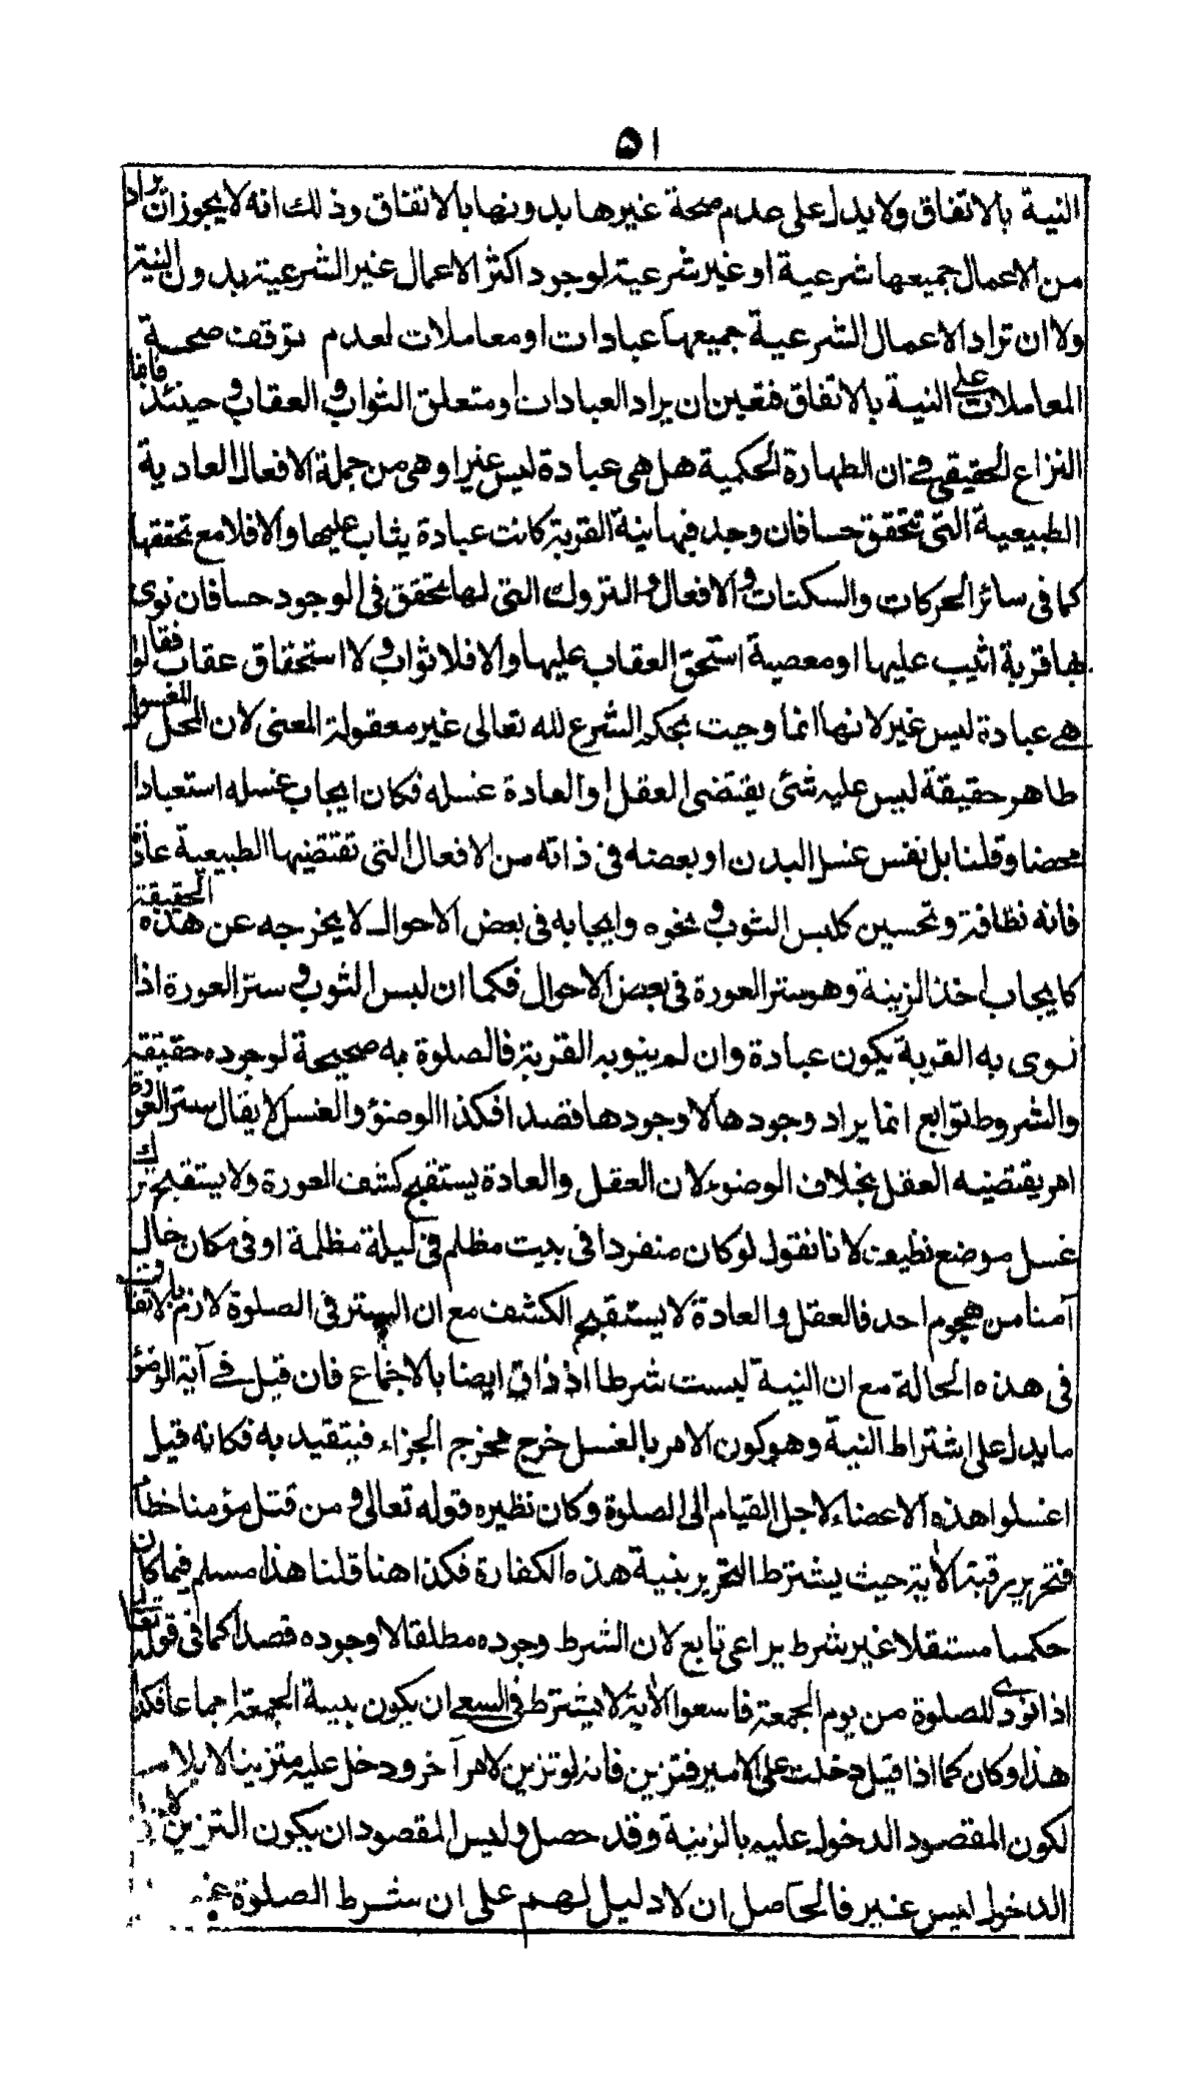 ٥١
النية بالاتفاق ولا يدل على عدم صحة غيرها بدونها بالاتفاق وذلك انه لا يجوز ان يراد
من الاعمال جميعها شرعية او غير شرعية لوجود اكثر الاعمال غير الشرعية بدون النية
ولا ان تراد الاعمال الشرعية جميعها عبادات او معاملات لعدم توقف صحة
المعاملات على النية بالاتفاق فتعين ان يراد العبادات او متعلق الثواب و العقاب و حينئذ فانما
النزاع الحقيقي في ان الطهارة الحكمية هل هي عبادة ليس غير او هي من جملة الافعال العادية
الطبيعية التي تتحقق حسا فان وجد فيها نية القربة كانت عبادة يثاب عليها والا فلا مع تحققها
كما في سائر الحركات والسكنات و الافعال و التروك التي لها تحقق في الوجود حسا فان نوى
بها قربة اثيب عليها او معصية استحق العقاب عليها والا فلا ثواب و لا استحقاق عقاب فقالوا
هي عبادة ليس غير لانها انما وجبت بحكم الشرع لله تعالى غير معقولة المعنى لان المحل المغسول
طاهر حقيقة ليس عليه شئ يقتضى العقل او العادة غسله فكان ايجاب غسله استعبادا
محضا وقلنا بل نفس غسل البدن او بعضه في ذاته من الافعال التي تقتضيها الطبيعية عادة
فانه نظافة وتحسين كلبس الثوب و نحوه وايجابه في بعض الاحوال لا يخرجه عن هذه الحقيقة
كايجاب اخذ الزينة وهو ستر العورة في بعض الاحوال فكما ان لبس الثوب و ستر العورة اذا
نوى به القربة يكون عبادة وان لم ينو به القربة فالصلوة به صحيحة لوجوده حقيقة
والشروط توابع انما يراد وجودها لا وجودها قصدا فكذا الوضوء والغسل لا يقال ستر العورة
امر يقتضيه العقل بخلاف الوضوء لان العقل والعادة يستقبح كشف العورة ولا يستقبح ترك
غسل موضع نظيف لانا نقول لو كان منفردا في بيت مظلم في ليلة مظلمة او في مكان خال
آمنا من هجوم احد فالعقل والعادة لا يستقبح الكشف مع ان الستر في الصلوة لازم بالاتفاق
في هذه الحالة مع ان النية ليست شرطا اذ ذاك ايضا بالاجماع فان قيل في آية الوضوء
ما يدل على اشتراط النية وهو كون الامر بالغسل خرج مخرج الجزاء فيتقيد به فكانه قيل
اغسلوا هذه الاعضاء لاجل القيام الى الصلوة وكان نظيره قوله تعالى و من قتل مؤمنا خطأ
فتحرير رقبة الآية حيث يشترط التحرير بنية هذه الكفارة فكذا هنا قلنا هذا مسلم فيما كان
حكما مستقلا غير شرط يراعى تابع لان الشرط وجوده مطلقا لا وجوده قصدا كما في قوله تعالى
اذا نودي للصلوة من يوم الجمعة فاسعوا الآية لا يشترط في السعي ان يكون بنية الجمعة اجماعا فكذا
هذا وكان كما اذا قيل دخلت على الامير فتزين فانه لو تزين لامر آخر ودخل عليه متزينا لا يلام
لكون المقصود الدخول عليه بالزينة وقد حصل وليس المقصود ان يكون التزين لاجل
الدخول ليس غير فالحاصل ان لا دليل لهم على ان شرط الصلوة